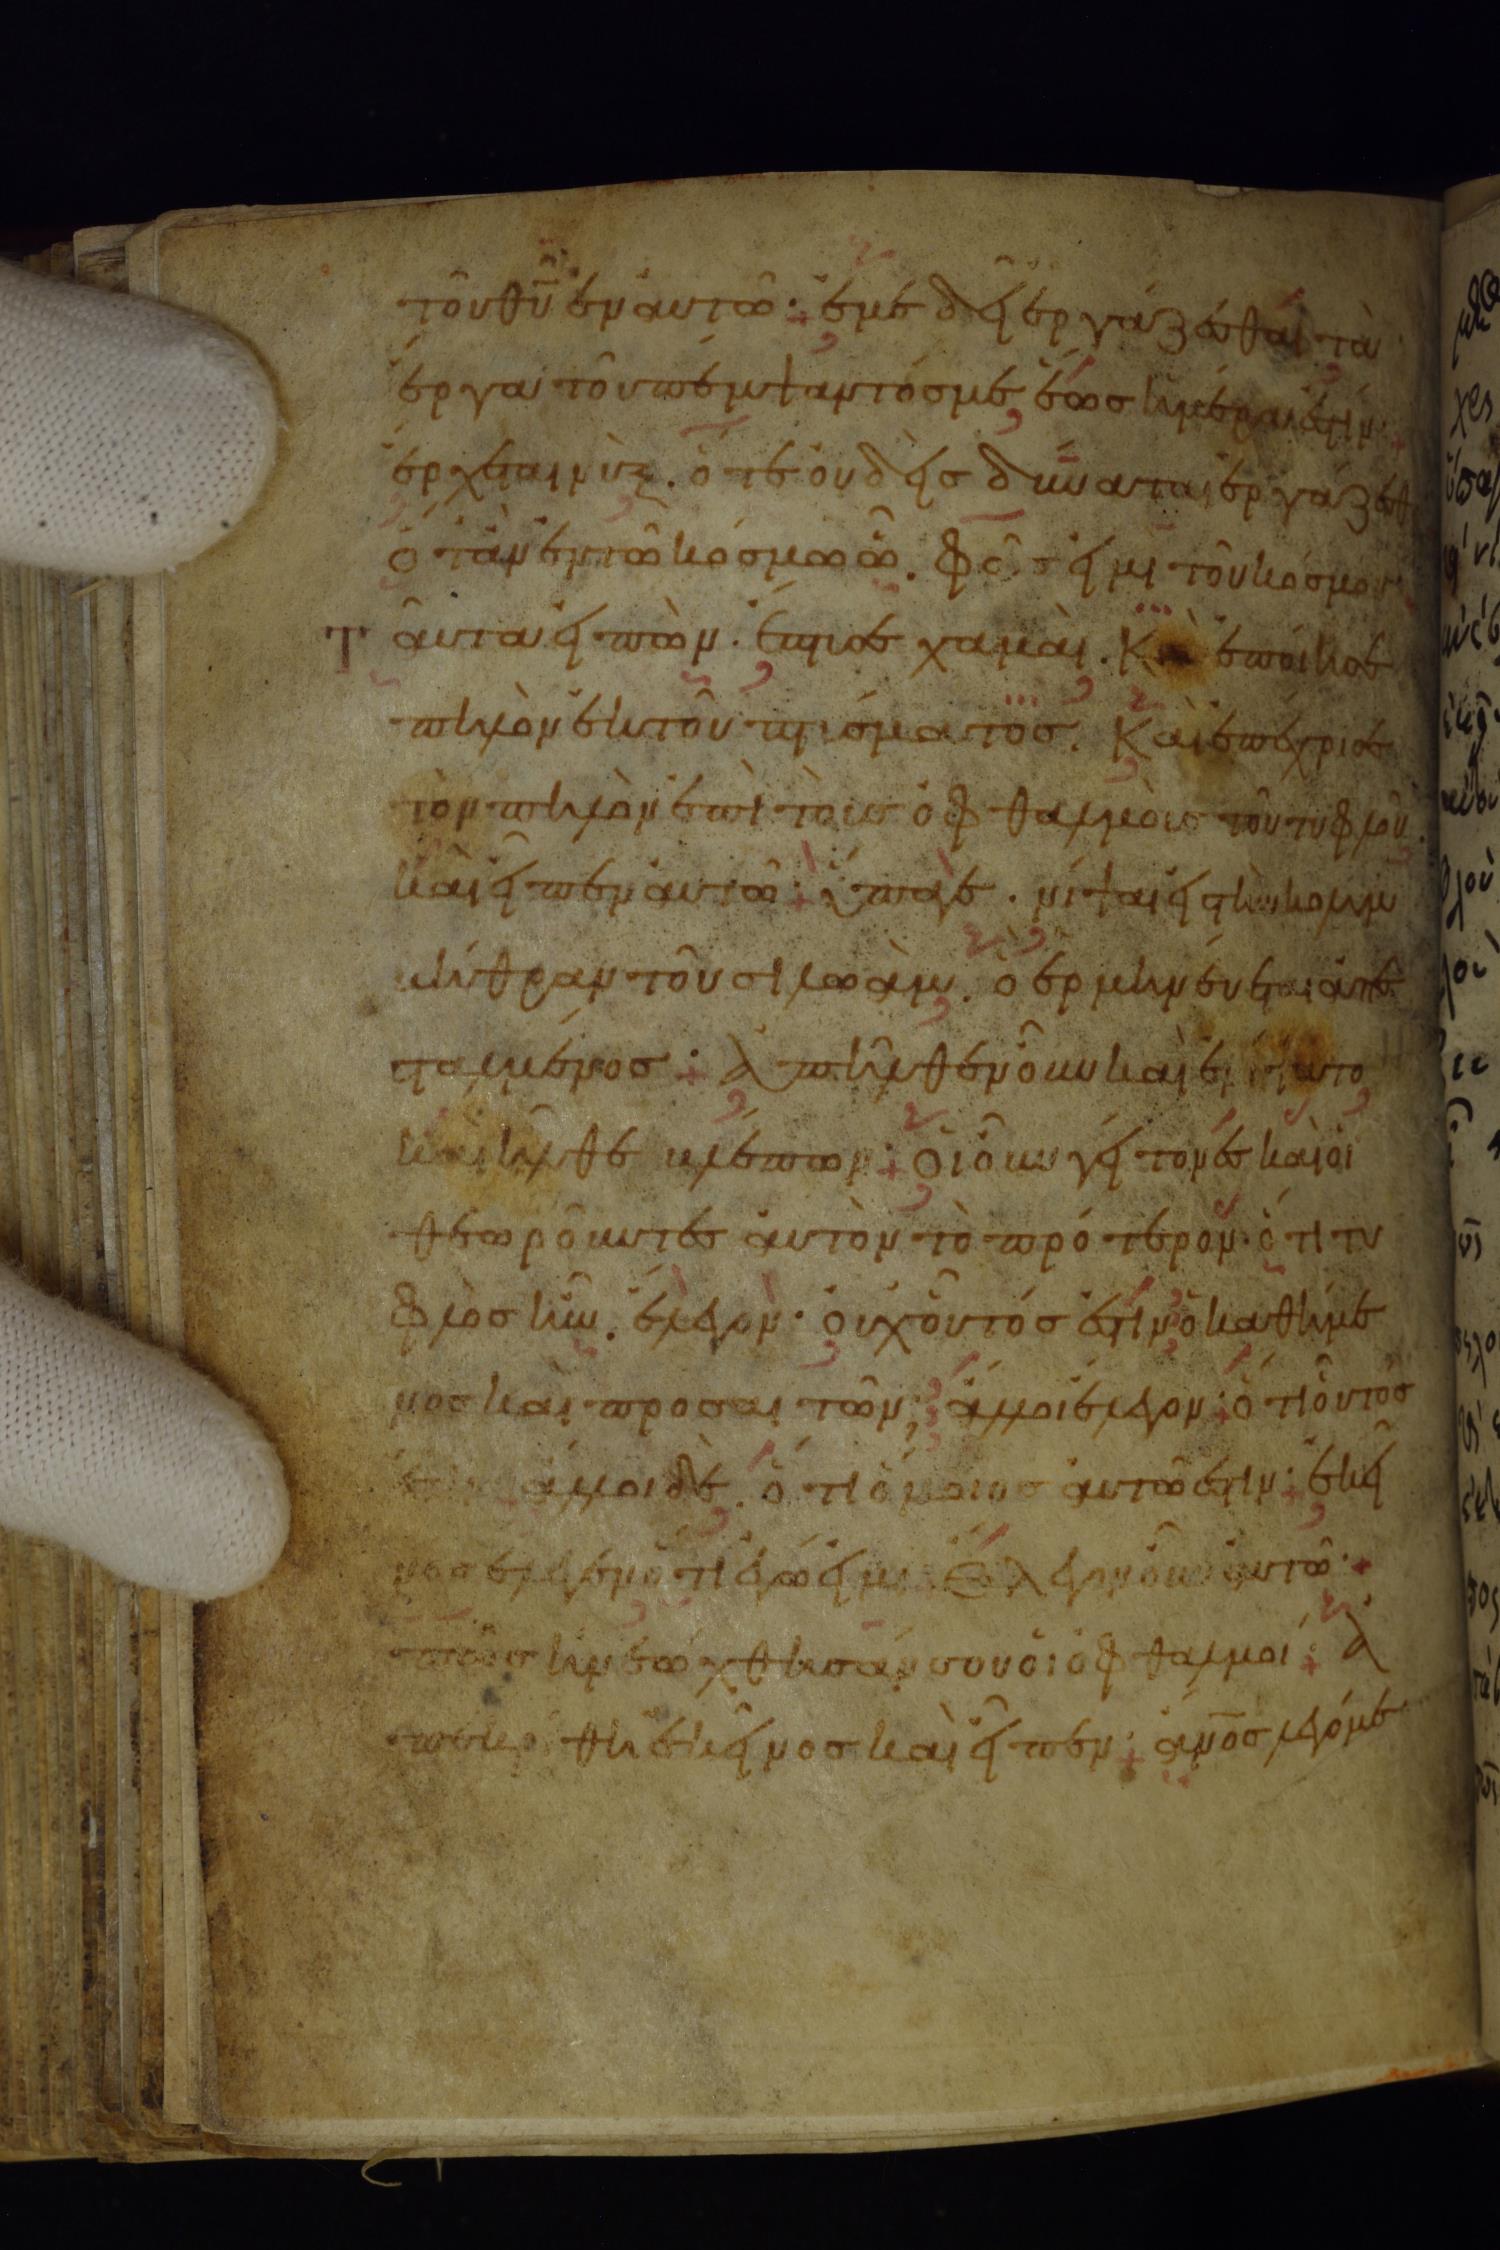 τοῦ θυ ἐν αὐτῶ· ἐμὲ δεῖ ἐργάζεσθαι τὰ
ἔργα τοῦ πέμψαντός με ἕως ἡμέρα ἐστίν·
ἔρχεται νὺξ. ὅτε οὐδεὶς δύναται ἐργάζεσθ
ὅταν ἐν τῶ κόσμω ὦ. φῶς εἰμι τοῦ κόσμου·
Ταῦτα εἰπὼν. ἔπτυσε χαμαὶ. Καὶ ἐποίησε
πηλὸν ἐκ τοῦ πτύσματος. Καὶ ἐπέχρισε
τὸν πηλὸν ἐπὶ τοὺς ὀφθαλμοὺς τοῦ τυφλοῦ.
καὶ εἶπεν αὐτῶ· ὕπαγε. νίψαι εἰς τὴν κολυμ
βήθραν τοῦ σιλωάμ. ὃ ἑρμηνεύεται ἀπε
σταλμένος· Ἀπῆλθεν οὖν καὶ ἐνίψατο
καὶ ἦλθε βλέπων· Οἱ οὖν γείτονες καὶ οἱ
θεωροῦντες αὐτὸν τὸ πρότερον· ὅτι τυ
φλὸς ἦν. ἔλεγον· οὐχ οὗτός ἐστιν ὁ καθήμε
νος καὶ προσαιτῶν; ἄλλοι ἔλεγον· ὅτι οὗτός
ἐστιν ἄλλοι δὲ. ὅτι ὅμοιος αὐτῶ ἐστιν· ἐκεῖ
νος ἔλεγεν ὅτι ἐγώ εἰμι· Ἔλεγον οὖν αὐτῶ·
πῶς ἠνεώχθησάν σου οἱ ὀφθαλμοί· Ἀ
πεκρίθη ἐκεῖνος καὶ εἶπεν· ἄνος λεγόμε